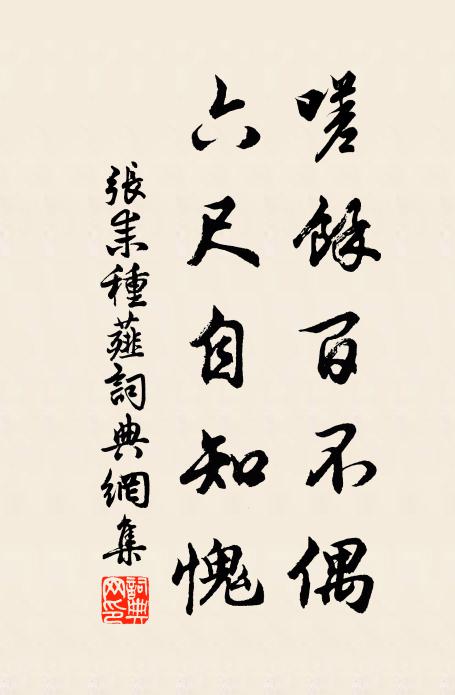 嗟餘百不偶
六尺自知愧
張耒種薤詞典網集
詞典网印